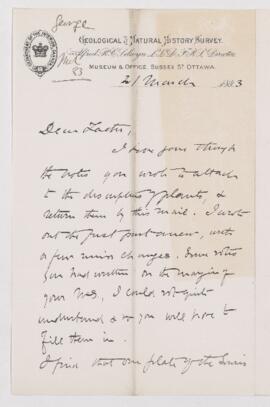 George
Mch
83
GEOLOGICAL & NATURAL HISTORY SURVEY.
Alfred R.C. Selwyn, L.L.D. F.R.S. Director
MUSEUM & OFFICE, SUSSEX ST OTTAWA.
21 March 1883
Dear Father,
I have gone through
the notes you wrote to attach
to the descriptions of plants, &
return them by this mail. I wrote
out the first part anew, with
a few minor changes. Some notes
you had written on the margin of
your MS, I could not quite
understand & so you will have to
fill them in.
I find that one plate of the